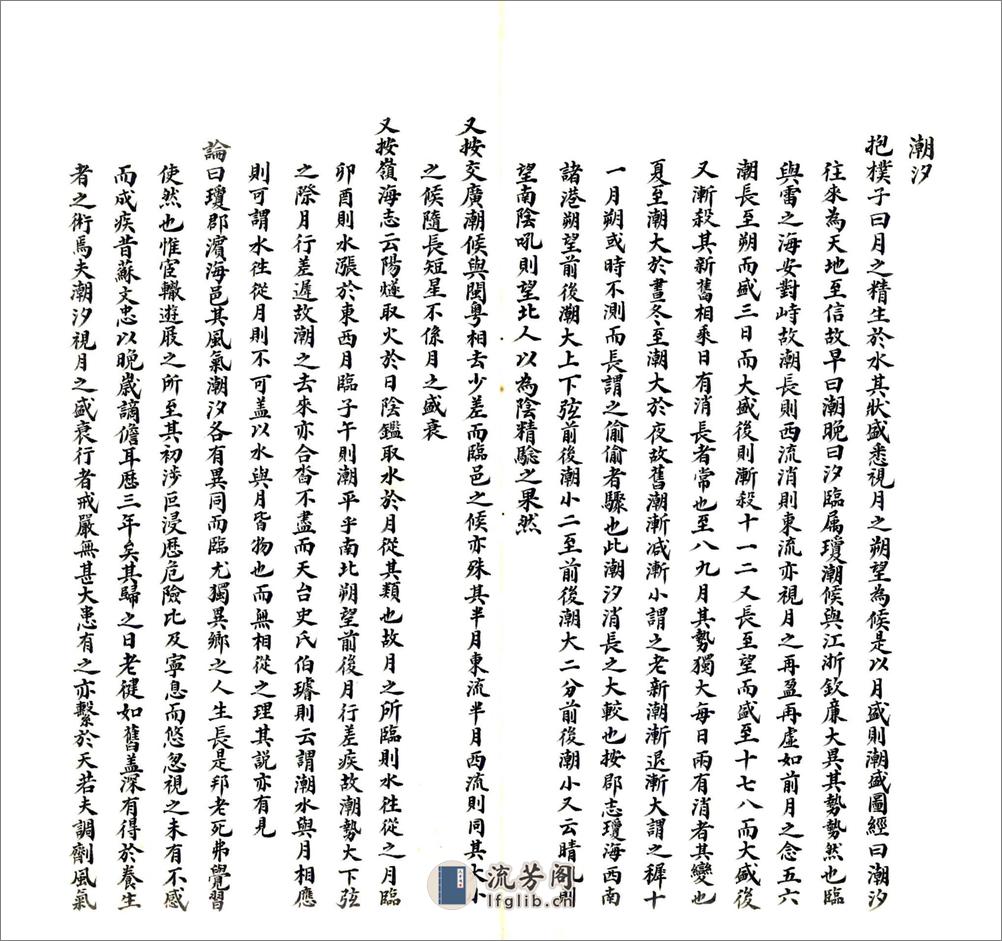 潮汐
抱樸子曰月之精生於水其狀盛悉視月之朔望為候是以月盛則潮盛圖經曰潮汐
往來為天地至信故早曰潮晚曰汐臨属瓊潮候與江浙欽廉大異其勢勢然也臨
與雷之海安對峙故潮長則西流消則東流亦視月之再盈再虛如前月之念五六
潮長至朔而盛三日而大盛後則漸殺十一二又長至望而盛至十七八而大盛後
又漸殺其新舊相乘日有消長者常也至八九月其勢獨大每日兩有消者其變也
夏至潮大於晝冬至潮大於夜故舊潮漸减漸小謂之老新潮漸退漸大謂之稺十
一月朔或時不測而長謂之偷偷者驟也此潮汐消長之大較也按郡志瓊海西南
諸港朔望前後潮大上下弦前後潮小二至前後潮大二分前後潮小又云晴鼎
望南陰吼則望北人以為陰精騐之果然
又按交廣潮候與閩粤相去少差而臨邑之候亦殊其半月東流半月西流則同其大小
之候隨長短星不係月之盛衰
又按嶺海志云陽燧取火於日陰鑑取水於月從其類也故月之所臨則水徃從之月臨
卯酉則水漲於東西月臨子午則潮平乎南北朔望前後月行差疾故潮勢大下弦
之際月行差遲故潮之去來亦合沓不盡而天台史氏伯璿則云謂潮水與月相應
則可謂水徃從月則不可盖以水與月皆物也而無相從之理其説亦有見
論曰瓊郡濱海邑其風氣潮汐各有異同而臨尤獨異鄉之人生長是邦老死弗覺習
使然也惟宦轍遊屐之所至其初涉巨浸歴危險比及寧息而悠忽視之未有不感
而成疾昔蘇文忠以晚歲謫儋耳歴三年矣其歸之日老健如舊盖深有得於養生
者之術焉夫潮汐視月之盛衰行者戒嚴無甚大患有之亦繫於天若夫調劑風氣
流芳阁
lfglib.cn